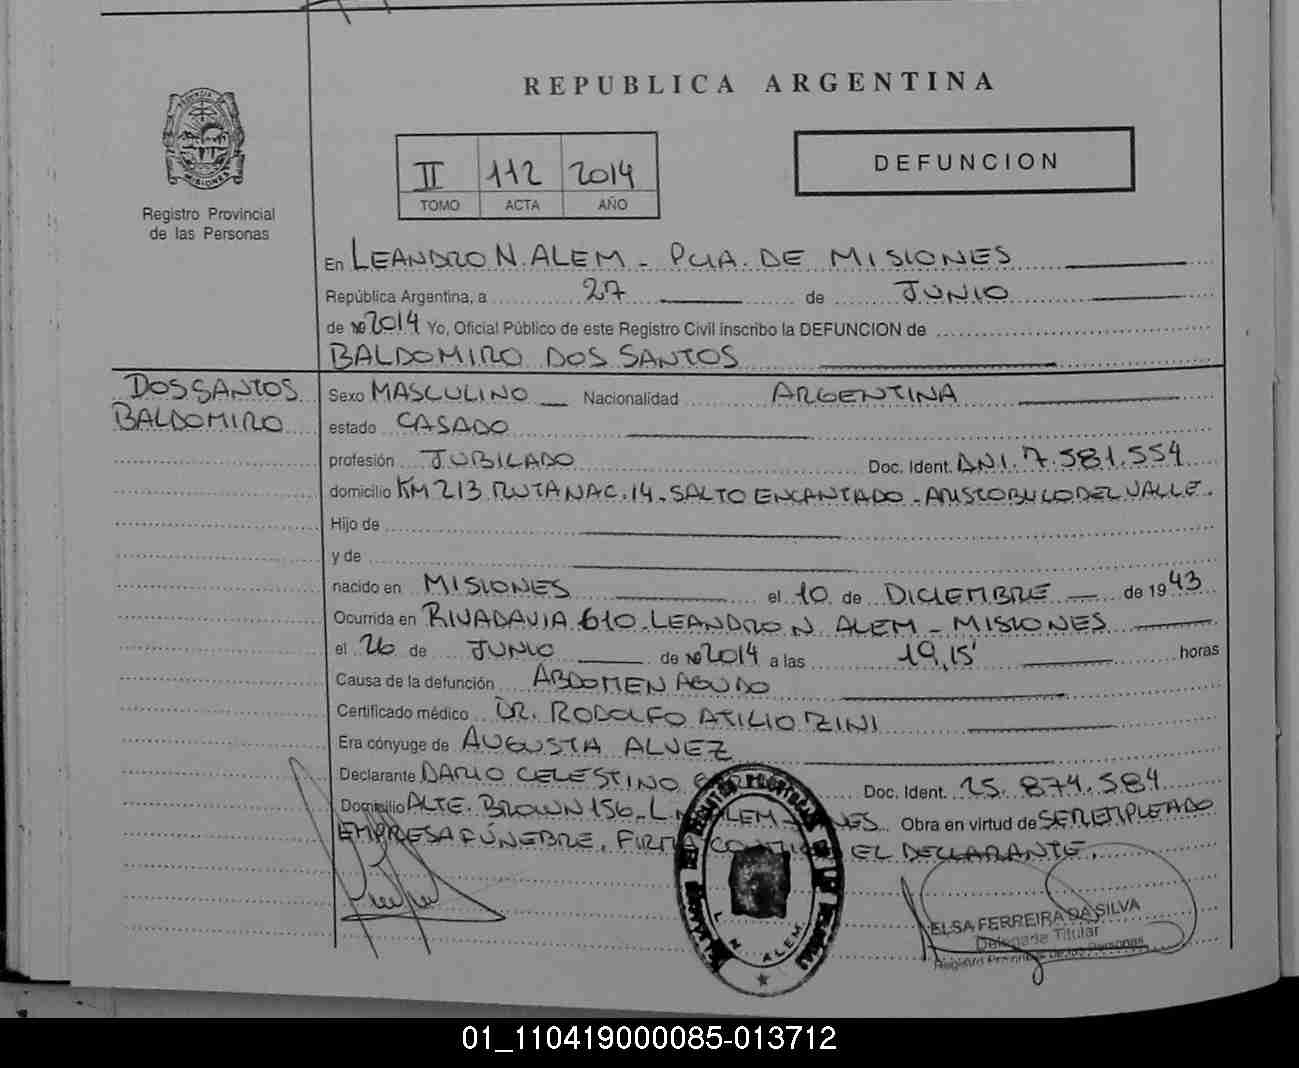 REPUBLICA ARGENTINA
II 112 2014
TOMO ACTA AÑO
DEFUNCION
Registro Provincial
de las Personas
En LEANDRO N. ALEM - PCIA. DE MISIONES
República Argentina, a 27 de JUNIO
de 2014 Yo, Oficial Público de este Registro Civil inscribo la DEFUNCION de
BALDOMIRO DOS SANTOS
DOS SANTOS
BALDOMIRO
Sexo MASCULINO Nacionalidad ARGENTINA
estado CASADO
profesión JUBILADO Doc. Ident. DNI. 7.581.554
domicilio KM 213 RUTA NAC. 14 - SALTO ENCANTADO - ARISTOBULO DEL VALLE.
Hijo de
y de
nacido en MISIONES el 10 de DICIEMBRE de 1943
Ocurrida en RIVADAVIA 610 - LEANDRO N. ALEM - MISIONES
el 26 de JUNIO de 2014 a las 19,15' horas
Causa de la defunción ABDOMEN AGUDO
Certificado médico DR. RODOLFO ATILIO ZINI
Era cónyuge de AUGUSTA ALVEZ
Declarante DARIO CELESTINO Doc. Ident. 25.874.584
Domicilio ALTE. BROWN 156 - L.N. ALEM - Obra en virtud de SER EMPLEADO
EMPRESA FÚNEBRE. FIRMA EL DECLARANTE.
L. N. ALEM
ELSA FERREIRA DA SILVA
Delegada Titular
Registro Provincial de las Personas
01_110419000085-013712